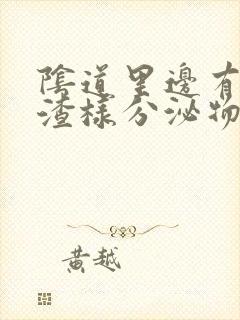 陰道里邊有
渣樣分泌物
黃越